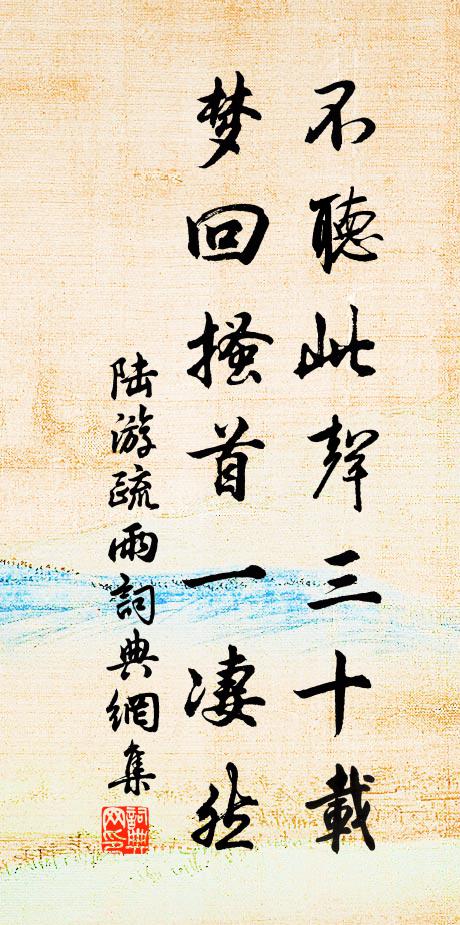 不聽此聲三十載
梦回搔首一凄然
陆游疏雨詞典網集
詞典
网印